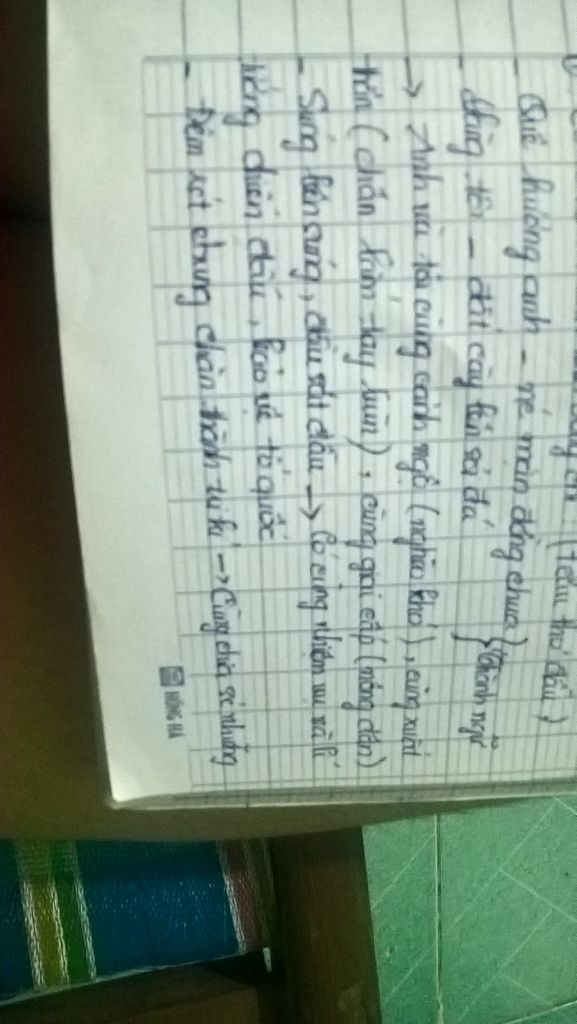 (7 câu thơ đầu)
- Quê hương anh - nước mặn đồng chua
Làng tôi - đất cày lên sỏi đá } thành ngữ
→ Anh và tôi cùng cảnh ngộ (nghèo khó), cùng xuất
thân (chân lấm tay bùn), cùng giai cấp (nông dân)
- Súng bên súng, đầu sát đầu → Có cùng nhiệm vụ và lí
tưởng chiến đấu, bảo vệ tổ quốc
- Đêm rét chung chăn thành tri kỉ → Cùng chia sẻ những
HỒNG HÀ